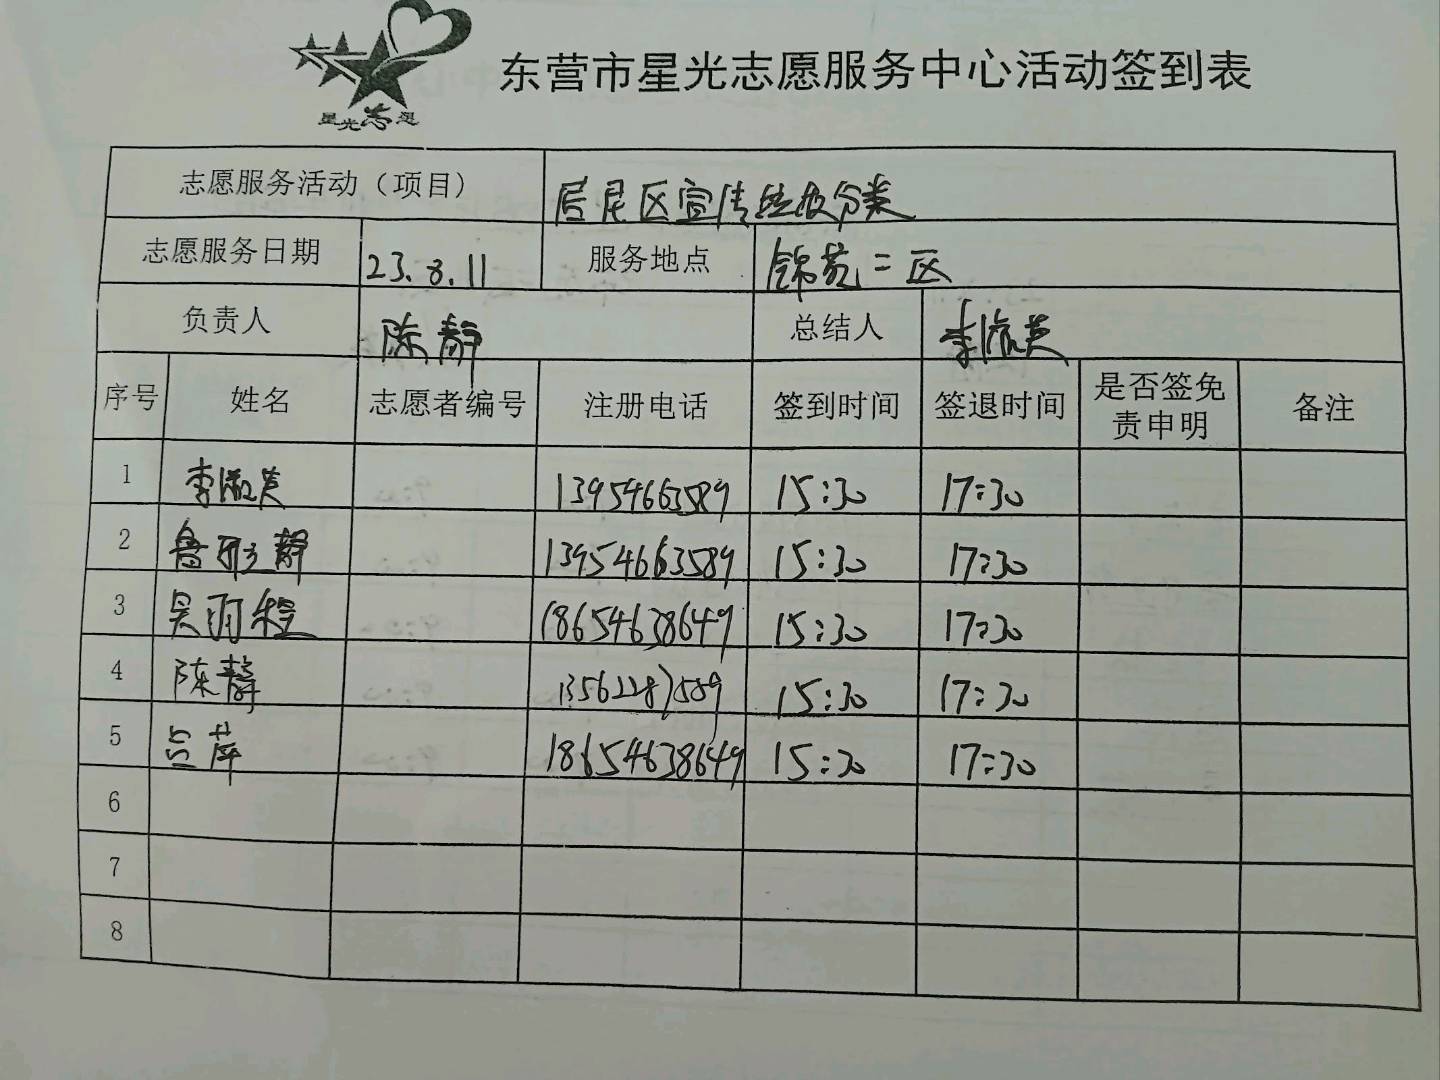 星光志愿
东营市星光志愿服务中心活动签到表
志愿服务活动（项目） 居民区宣传垃圾分类
志愿服务日期 23.8.11 服务地点 锦苑二区
负责人 陈静 总结人 李淑英
序号 姓名 志愿者编号 注册电话 签到时间 签退时间 是否签免责申明 备注
1 李淑英 13954663589 15:30 17:30
2 鲁 静 13954663589 15:30 17:30
3 吴雨程 18654638649 15:30 17:30
4 陈静 15:30 17:30
5 兰萍 18654638649 15:30 17:30
6
7
8